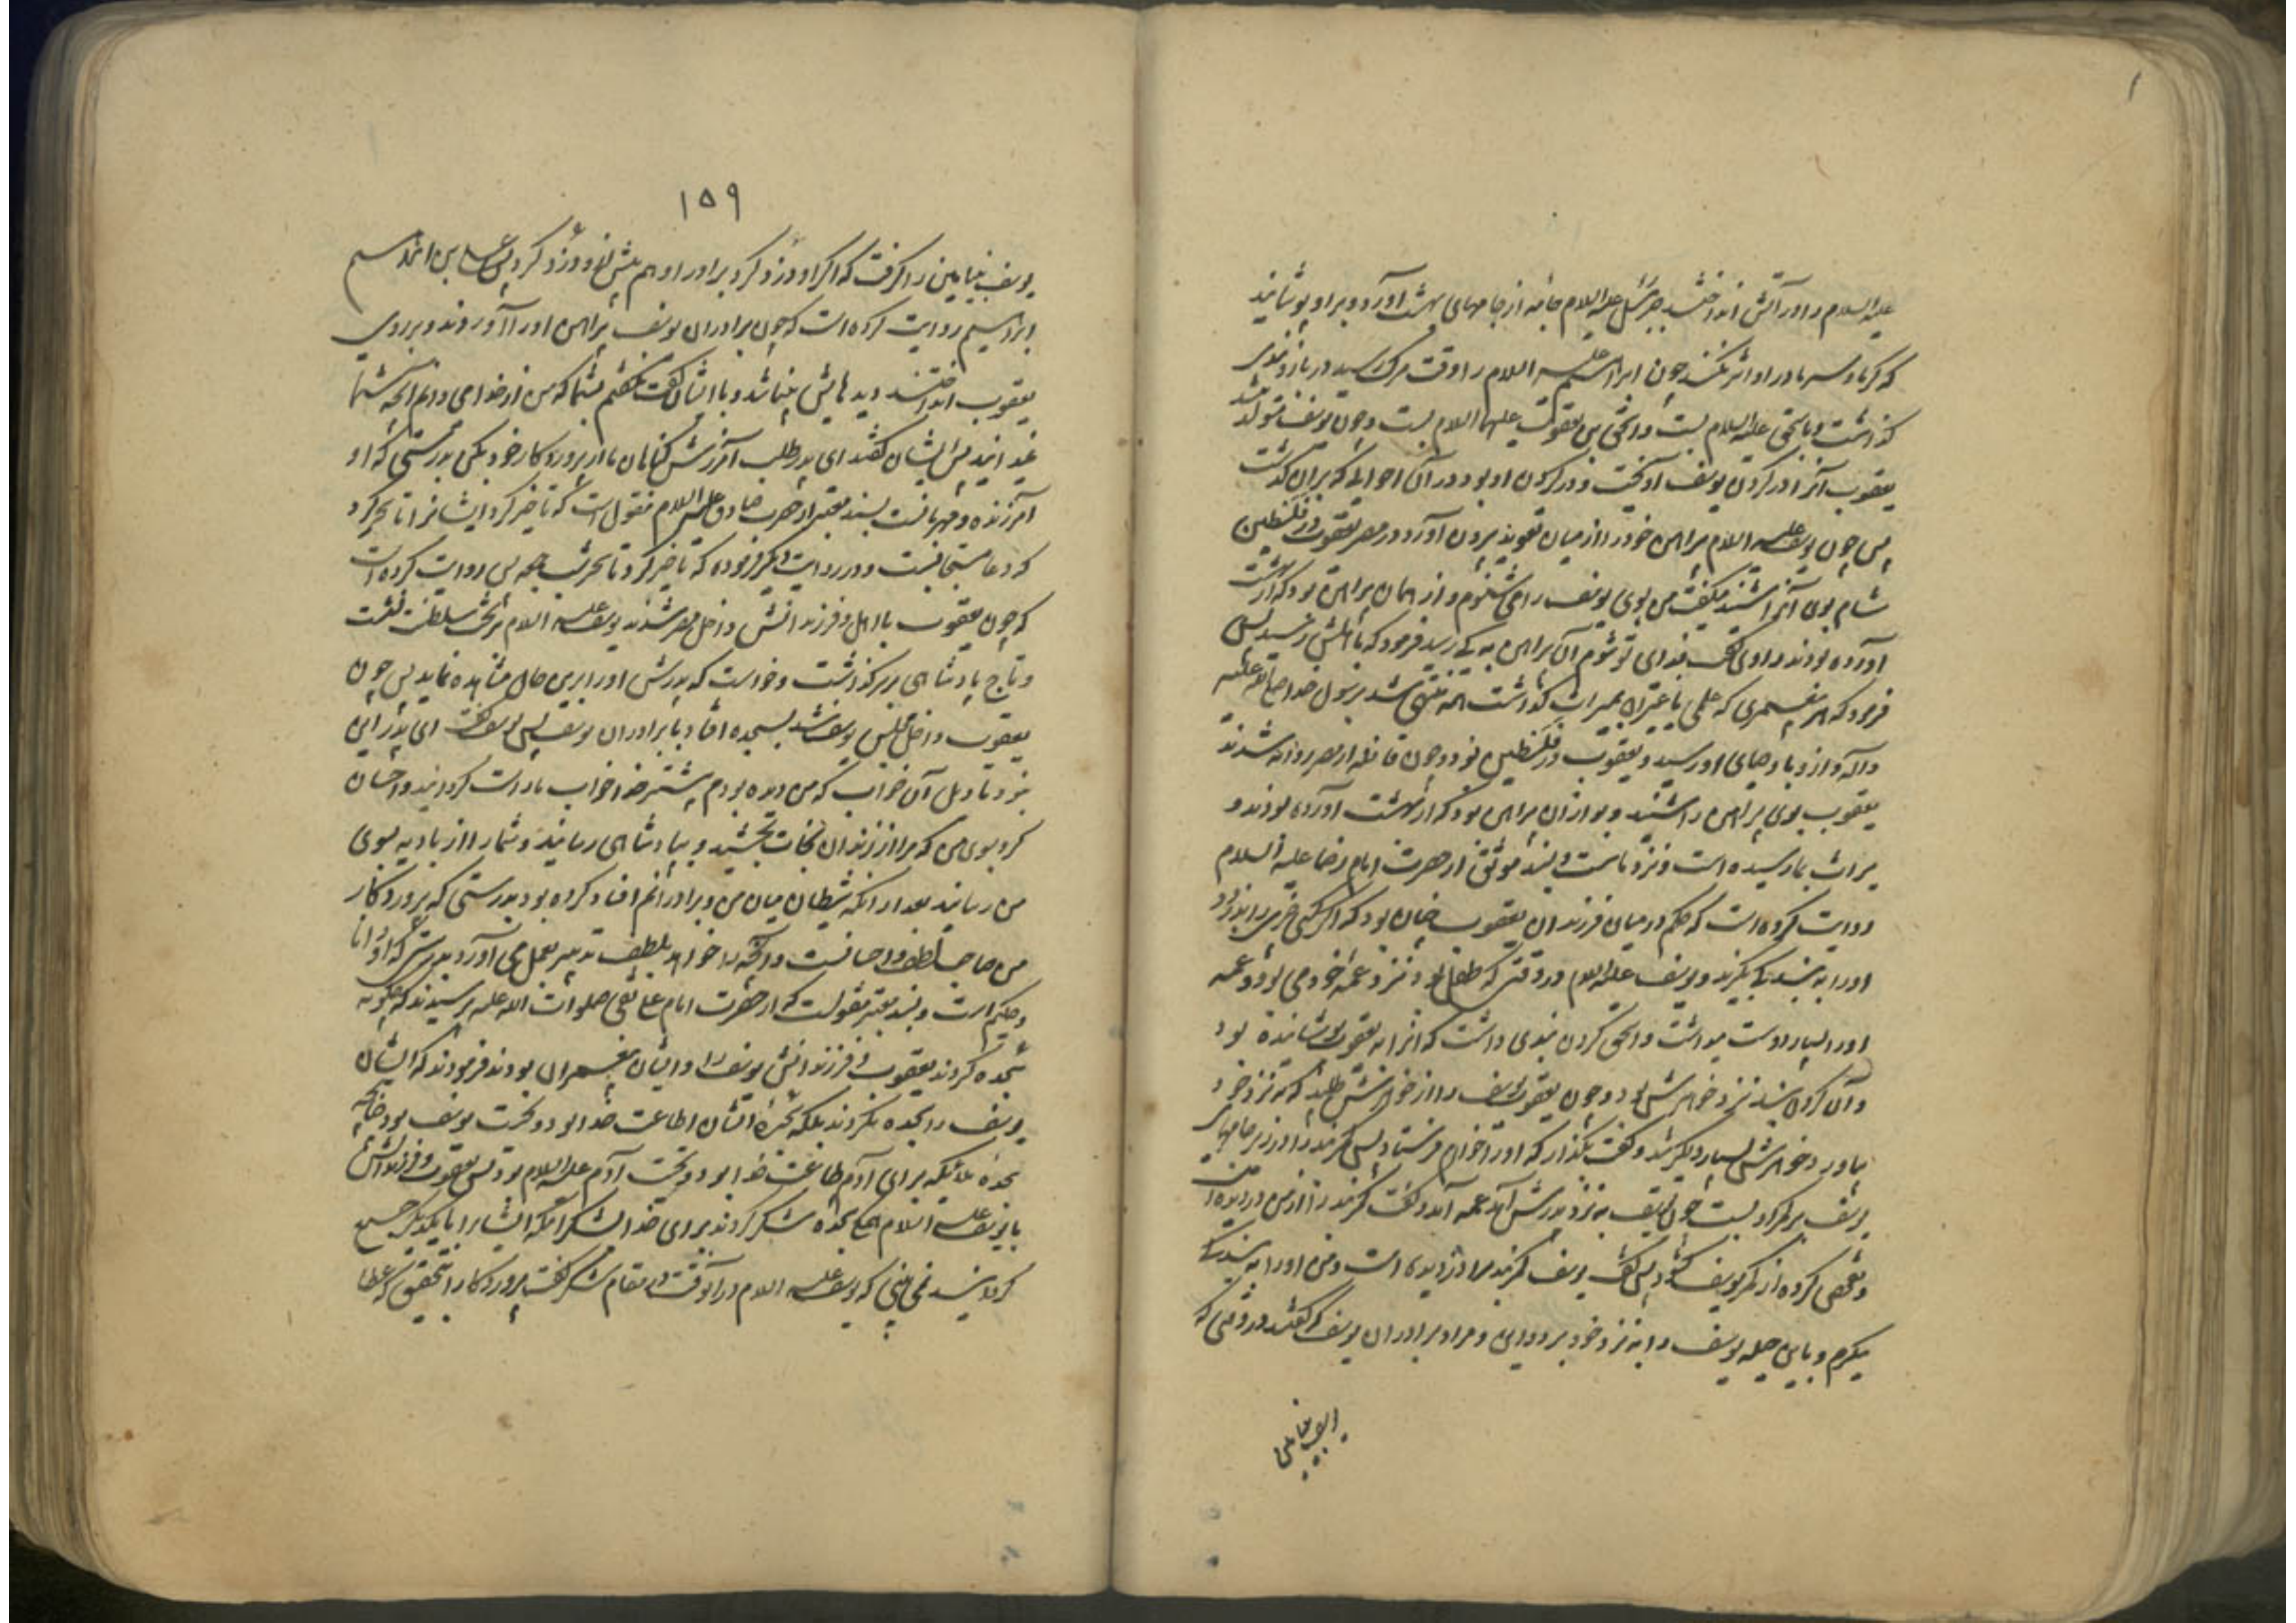 علیه السلام را در آتش انداختند جبرئیل علیه السلام جامه از جامهای بهشت آورد و بر او پوشانید
که گرما و سرما در او اثر نکند چون ابراهیم علیه السلام را وقت مرگ رسید در بازوبندی
گذاشت و بر اسحق علیه السلام بست و اسحق بر یعقوب علیهما السلام بست و چون یوسف متولد شد
یعقوب آنرا در گردن یوسف آویخت و در گردن او بود در آن احوالی که بر آن گذشت
پس چون یوسف علیه السلام پیراهن خود را از میان تعویذ بیرون آورد در مصر یعقوب در فلسطین
شام بوی آنرا شنید گفت من بوی یوسف را می شنوم و از همان پیراهن بود که از بهشت
آورده بودند راوی گفت فدای تو شوم آن پیراهن به که رسید فرمود که باهلش رسید پس
فرمود که هر پیغمبری که علمی یا غیر آن بمیراث گذاشت همه منتهی شد برسول خدا صلی الله علیه
و آله و از او باوصیای او رسید و یعقوب در فلسطین بود و چون قافله از مصر روانه شدند
یعقوب بوی پیراهن را شنید و بو از آن پیراهن بود که از بهشت آورده بودند و
میراث بما رسیده است و نزد ماست و بسند موثق از حضرت امام رضا علیه السلام
روایت کرده است که حکم در میان فرزندان یعقوب چنان بود که اگر کسی چیزی را بدزدد
او را به بندگی بگیرند و یوسف علیه السلام در وقتی که طفل بود نزد عمه خود می بود و عمه
او را بسیار دوست میداشت و اسحق کمربندی داشت که آنرا به یعقوب پوشانیده بود
و آن کمربند نزد خواهرش بود و چون یعقوب یوسف را از خواهرش طلبید که به نزد خود
بیاورد خواهرش بسیار دلگیر شد و گفت بگذار که او را خواهم فرستاد پس کمربند را در زیر جامهای
یوسف بر کمر او بست چون یوسف به نزد پدرش آمد عمه آمد و گفت کمربند را از من دزدیده اند
و تفحص کرده از کمر یوسف گشود پس گفت یوسف کمربند مرا دزدیده است و من او را به بندگی
میگیرم و باین حیله یوسف را به نزد خود برد و این مراد برادران یوسف که گفتند در وقتی که
یوسف بنیامین
۱۵۹
یوسف بنیامین را گرفت که اگر او دزدی کرد برادر او هم پیش از او دزدی کرد پس علی بن ابراهیم
ابراهیم روایت کرده است که چون برادران یوسف پیراهن او را آوردند و بر روی
یعقوب انداختند دیدهایش بینا شد و با ایشان گفت نگفتم بشما که من از خدا می دانم آنچه شما
نمیدانید پس ایشان گفتند ای پدر طلب آمرزش گناهان ما از پروردگار خود بکن بدرستی که او
آمرزنده و مهربانست بسند معتبر از حضرت صادق علیه السلام منقول است که تاخیر کرد ایشانرا تا سحر گرد
که دعا مستجابست و در روایت دیگر فرموده که تاخیر کرد تا سحر شب جمعه پس روایت کرده است
که چون یعقوب با اهل و فرزندانش داخل مصر شدند یوسف علیه السلام بر تخت سلطنت نشست
و تاج پادشاهی بر سر گذاشت و خواست که پدرش او را برین حال مشاهده نماید پس چون
یعقوب داخل مجلس یوسف شد بسجده افتاد با برادران یوسف پس یوسف گفت ای پدر این
بود تاویل آن خواب که من دیده بودم پیشتر خدا خواب ما راست گردانید و احسان
کرد بوی من که مرا از زندان نجات بخشید و بپادشاهی رسانید و شما را از بادیه بسوی
من رسانید بعد از آنکه شیطان میان من و برادرانم افساد کرده بود بدرستی که پروردگار
من صاحب لطف و احسانست و آنچه را خواهد بلطف تدبیر بعمل می آورد بدرستی که او دانا
و حکیم است و بسند معتبر منقولست که از حضرت امام علی نقی صلوات الله علیه پرسیدند که چگونه
سجده کردند یعقوب و فرزندانش یوسف را و ایشان پیغمبران بودند فرمودند که ایشان
یوسف را سجده نکردند بلکه سجده ایشان اطاعت خدا بود و تحیت یوسف بود چنانچه
سجده ملائکه برای آدم طاعت خدا بود و تحیت آدم علیه السلام بود پس یعقوب و فرزندانش
با یوسف علیه السلام همه سجده شکر کردند برای خدا بشکر آنکه ایشانرا با یکدیگر جمع
گردانید نمی بینی که یوسف علیه السلام در آنوقت در مقام شکر گفت پروردگارا بتحقیق که عطا